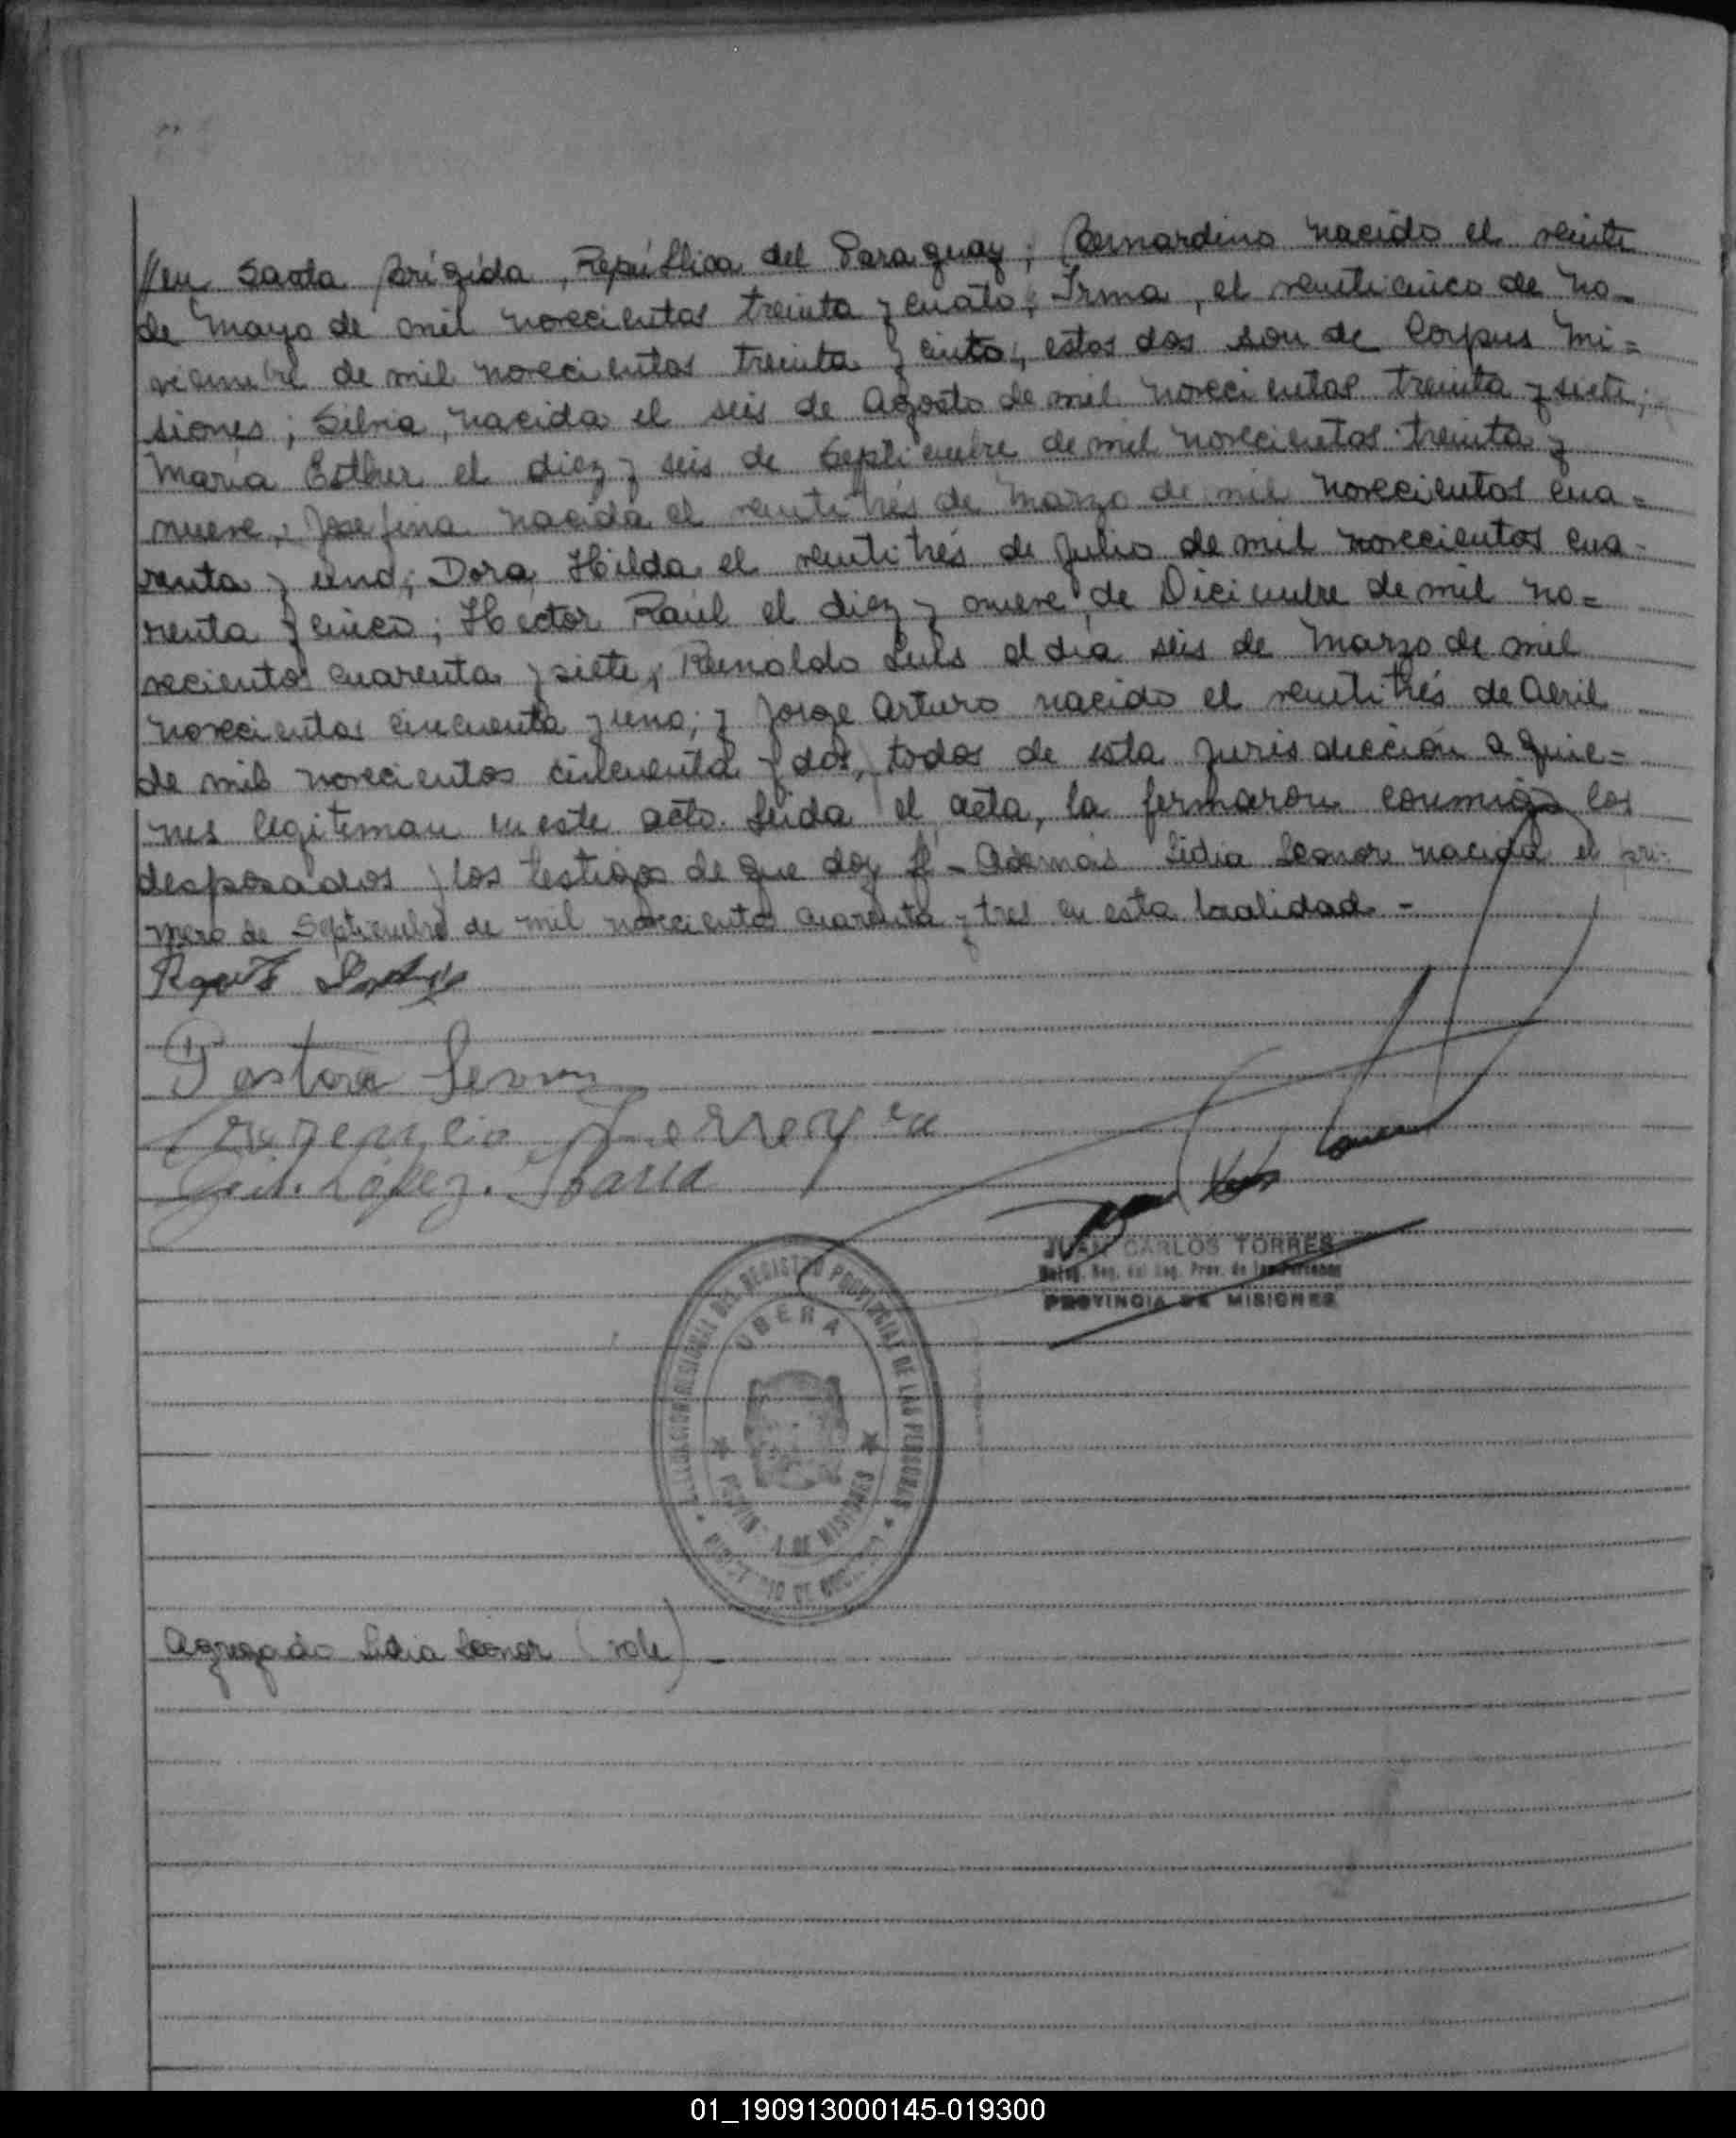 //en Santa Brígida, República del Paraguay; Bernardino nacido el veinte
de Mayo de mil novecientos treinta y cuato; Irma, el veinticinco de No-
viembre de mil novecientos treinta y cinco, estos dos son de Corpus Mi=
siones; Silvia, nacida el seis de Agosto de mil novecientos treinta y siete;
María Esther el diez y seis de Septiembre de mil novecientos treinta y
nueve, Josefina nacida el veintitrés de Marzo de mil novecientos cua=
renta y uno; Dora Hilda el veintitrés de Julio de mil novecientos cua-
renta y cinco; Hector Raúl el diez y nueve de Diciembre de mil no=
vecientos cuarenta y siete, Reinaldo Luis el día seis de Marzo de mil
novecientos cincuenta y uno; y Jorge Arturo nacido el veintitrés de Abril
de mil novecientos cincuenta y dos, todos de esta jurisdicción a quie=
nes legitiman en este acto. Leida el acta, la firmaron conmigo los
desposados y los testigos de que doy fé - Además Lidia Leonor nacida el pri-
mero de Septiembre de mil novecientos cuarenta y tres en esta localidad. -
Pastora
Ferreyra
López.
JUAN CARLOS TORRES
Deleg. Reg. del Reg. Prov. de las Personas
PROVINCIA DE MISIONES
DELEGACION REGIONAL DEL REGISTRO PROVINCIAL DE LAS PERSONAS
OBERA
PROVINCIA DE MISIONES
MINISTERIO DE GOBIERNO
Agregado Lidia Leonor (vale) -
01_190913000145-019300